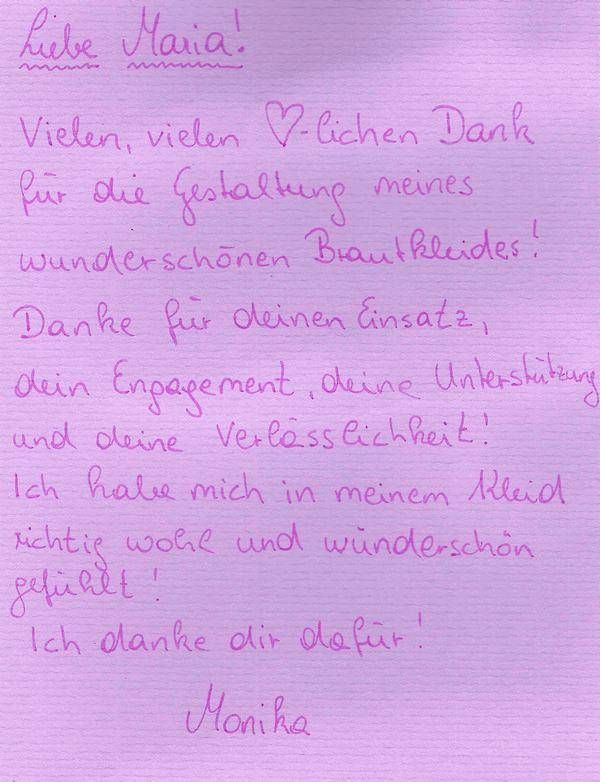 Liebe Maria!
Vielen, vielen ♡-lichen Dank
für die Gestaltung meines
wunderschönen Brautkleides!
Danke für deinen Einsatz,
dein Engagement, deine Unterstützung
und deine Verlässlichkeit!
Ich habe mich in meinem Kleid
richtig wohl und wünderschön
gefühlt!
Ich danke dir dafür!
Monika